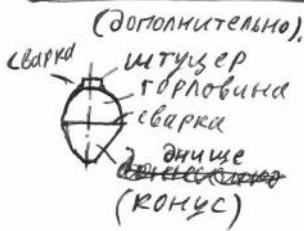 (дополнительно).
сварка
штуцер
горловина
сварка
днище
(конус)